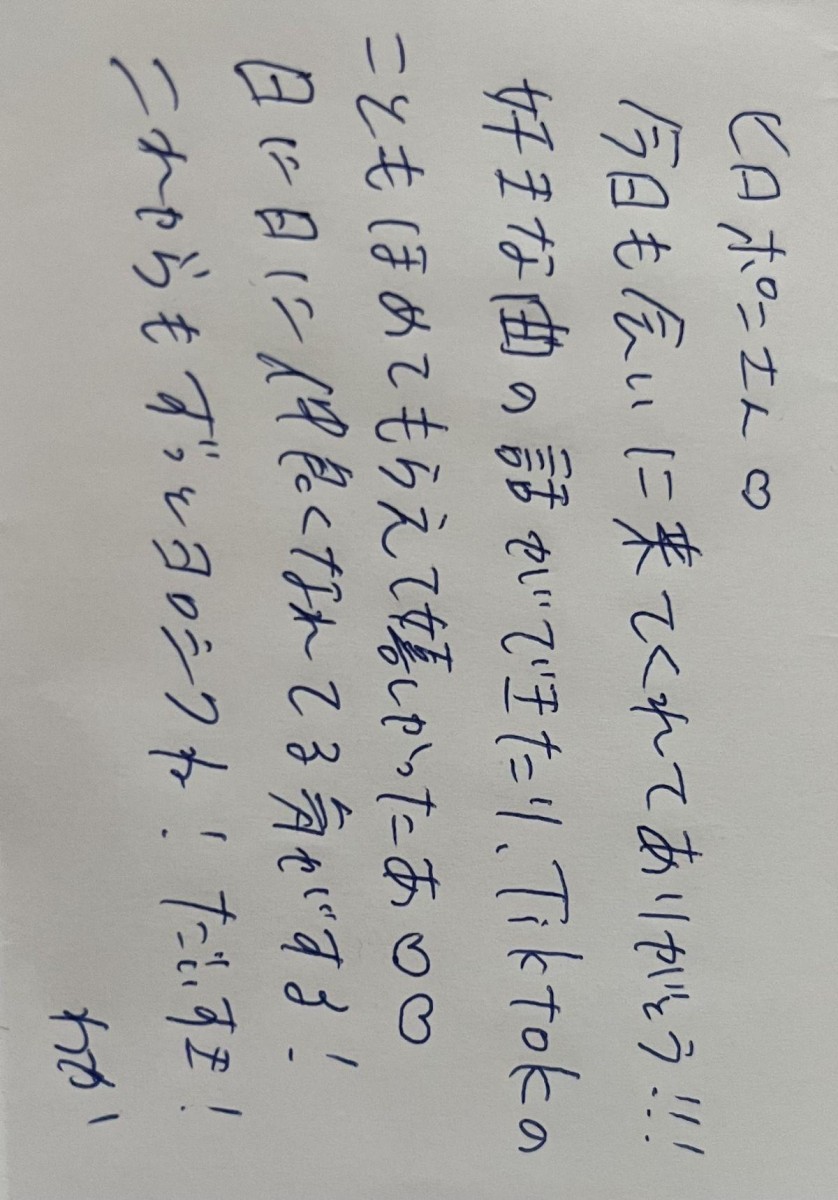 ヒロポンさん♡
今日も会いに来てくれてありがとう!!!
好きな曲の話ができたり、TikTokの
こともほめてもらえて嬉しかったあ♡♡
日に日に仲良くなれてる気がする!
これからもずっとヨロシクね!だいすき!